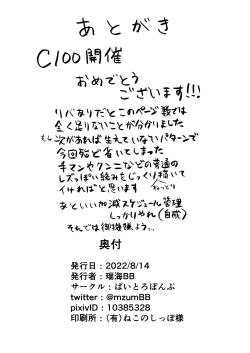 あとがき
C100開催
おめでとう
ございます!!!
リバありだとこのページ数では
全く足りないことが分かりました
もし次があれば生えていないパターンで
今回殆ど省いてしまった
手マンやクンニなどの普通の
レズっぽい絡みをじっくりねっとり描いて
いければと思います
あといい加減スケジュール管理
しっかりやれ(自戒)
それでは御機嫌よう…
奥付
発行日:2022/8/14
発行者:瑞海BB
サークル:ぱいとろぼんぶ
twitter:@mzumBB
pixivID:10385328
印刷所:(有)ねこのしっぽ様